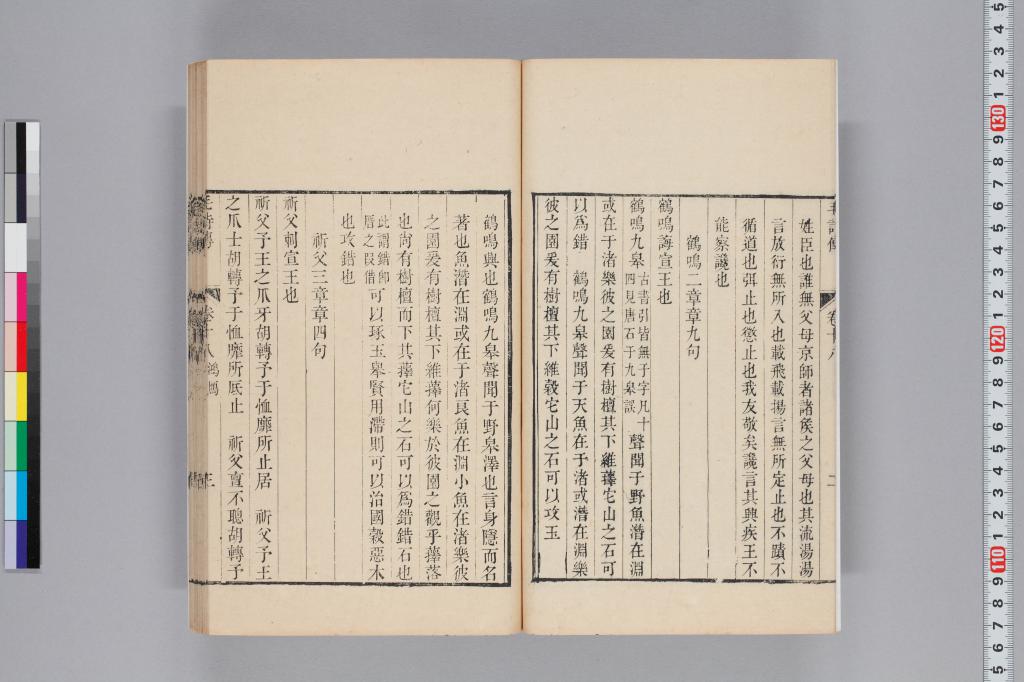 姓臣也誰無父母京師者諸矦之父母也其流湯湯
言放衍無所入也載飛載揚言無所定止也不蹟不
循道也弭止也懲止也我友敬矣讒言其興疾王不
能察讒也
鶴鳴二章章九句
鶴鳴誨宣王也
鶴鳴九皋古書引皆無于字凡十四見唐石于九皋誤聲聞于野魚潛在淵
或在于渚樂彼之園爰有樹檀其下維蘀它山之石可
以爲錯 鶴鳴九皋聲聞于天魚在于渚或潛在淵樂
彼之園爰有樹檀其下維榖它山之石可以攻玉
鶴鳴興也鶴鳴九皋聲聞于野皋澤也言身隱而名
著也魚潛在淵或在于渚良魚在淵小魚在渚樂彼
之園爰有樹檀其下維蘀何樂於彼園之觀乎蘀落
也尙有樹檀而下其蘀它山之石可以爲錯錯石也
此謂錯卽厝之叚借可以琢玉舉賢用滯則可以治國榖惡木
也攻錯也
祈父三章章四句
祈父刺宣王也
祈父予王之爪牙胡轉予于恤靡所止居 祈父予王
之爪士胡轉予于恤靡所底止 祈父亶不聰胡轉予
毛詩傳 卷十八 鴻鴈 三